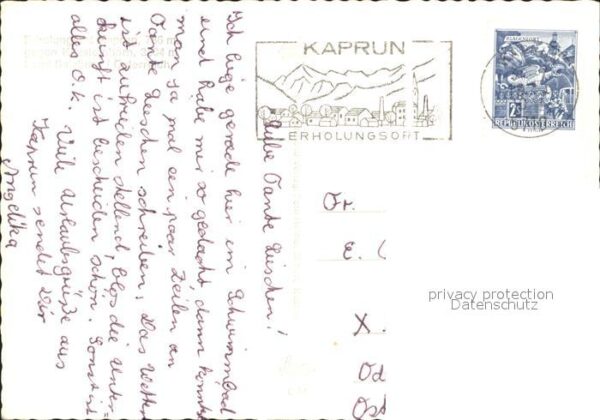 KAPRUN
ERHOLUNGSORT
KLAGENFURT
2S
REPUBLIK ÖSTERREICH
Liebe Tante Lieschen!
Ich liege gerade hier im Schwimmbad
und habe mir so gedacht, dann könnte
man ja mal ein paar Zeilen an
Tante Lieschen schreiben. Das Wetter
ist zufrieden stellend, blos die Unter-
kunft ist bescheiden schön. Sonst ist
alles O.k. Viele Urlaubsgrüße aus
Kaprun sendet Dir
Angelika
Fr.
E.
X.
Od
Ost
privacy protection
Datenschutz